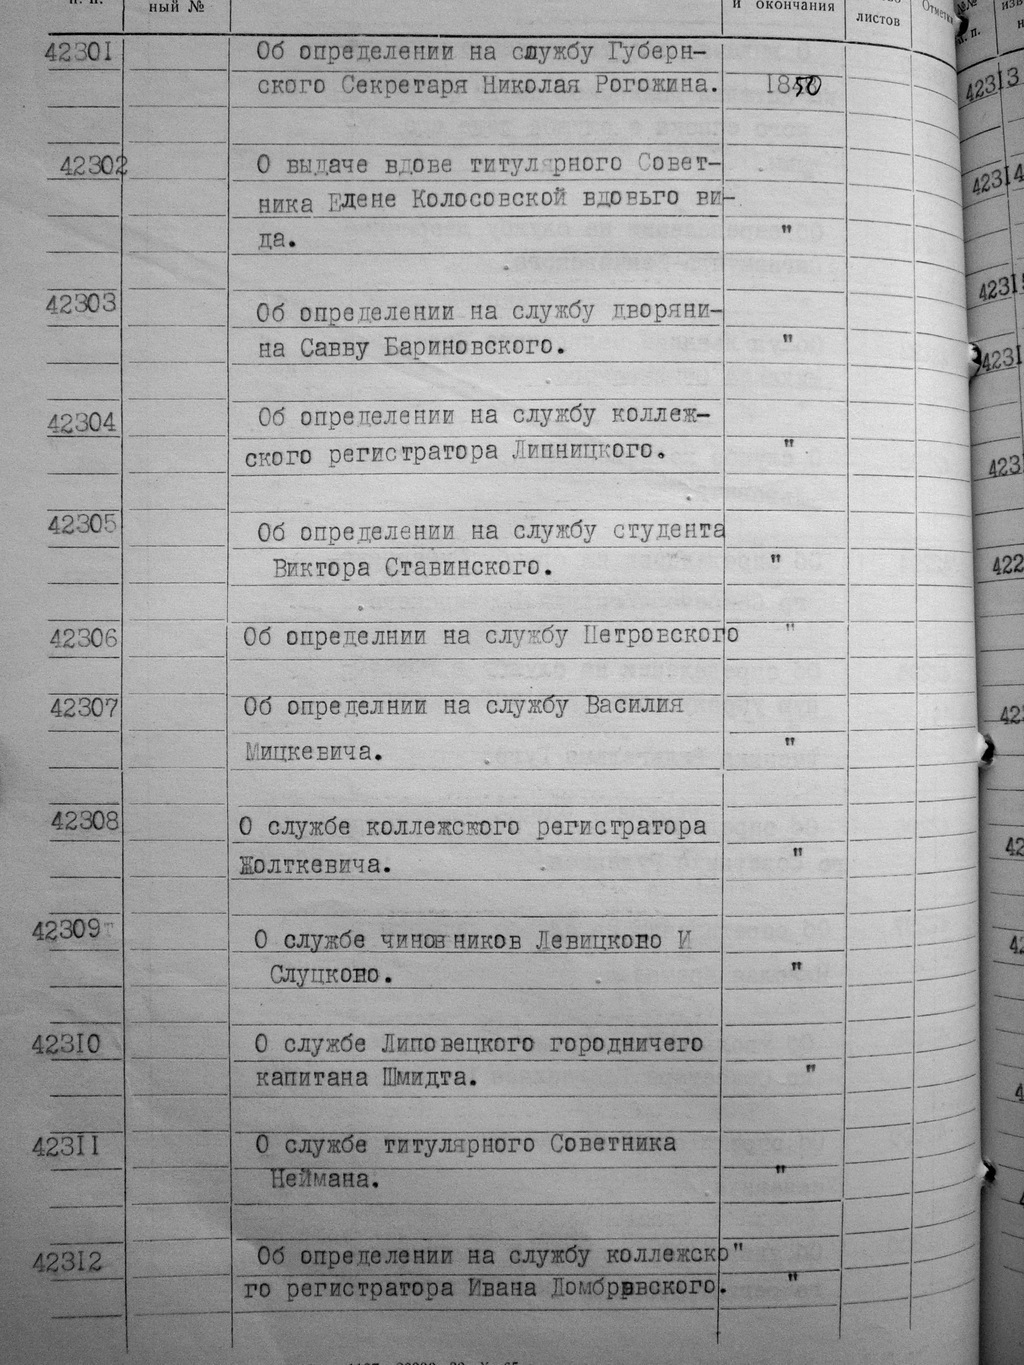 ный №
и окончания
листов
Отметки
42301 Об определении на службу Губерн-
ского Секретаря Николая Рогожина. 1850
42302 О выдаче вдове титулярного Совет-
ника Елене Колосовской вдовьго ви-
да. "
42303 Об определении на службу дворяни-
на Савву Бариновского. "
42304 Об определении на службу коллеж-
ского регистратора Липницкого. "
42305 Об определении на службу студента
Виктора Ставинского. "
42306 Об определнии на службу Петровского "
42307 Об определнии на службу Василия
Мицкевича. "
42308 О службе коллежского регистратора
Жолткевича. "
42309 О службе чиновников Левицконо И
Слуцконо. "
42310 О службе Липовецкого городничего
капитана Шмидта. "
42311 О службе титулярного Советника
Неймана. "
42312 Об определении на службу коллежско"
го регистратора Ивана Домбровского. "
42313
42314